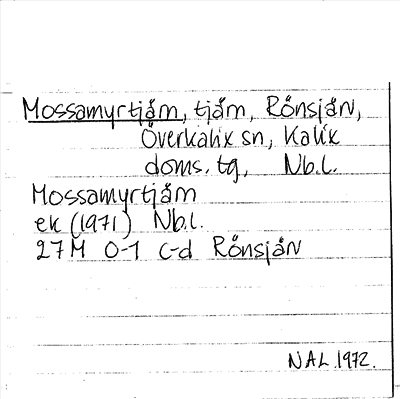 Mossamyrtjåm, tjåm, Rönsjån,
Överkalix sn, Kalix
doms. tg, Nb.l.
Mossamyrtjåm
ek (1971) Nb.l.
27M 0-1 c-d Rönsjån
NAL. 1972.